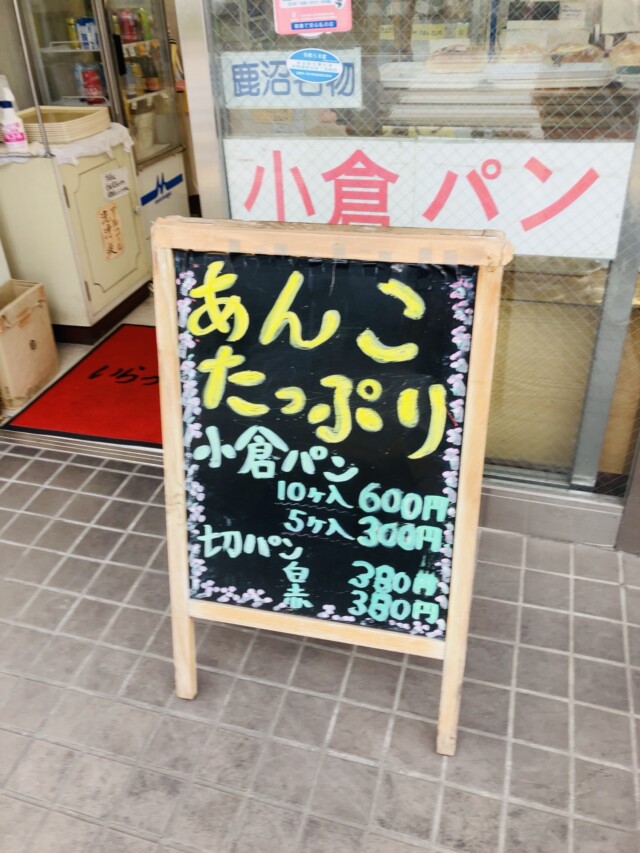 鹿沼名物
小倉パン
あんこ
たっぷり
小倉パン
10ヶ入 600円
5ヶ入 300円
切パン
白 380円
赤 380円
いらっ